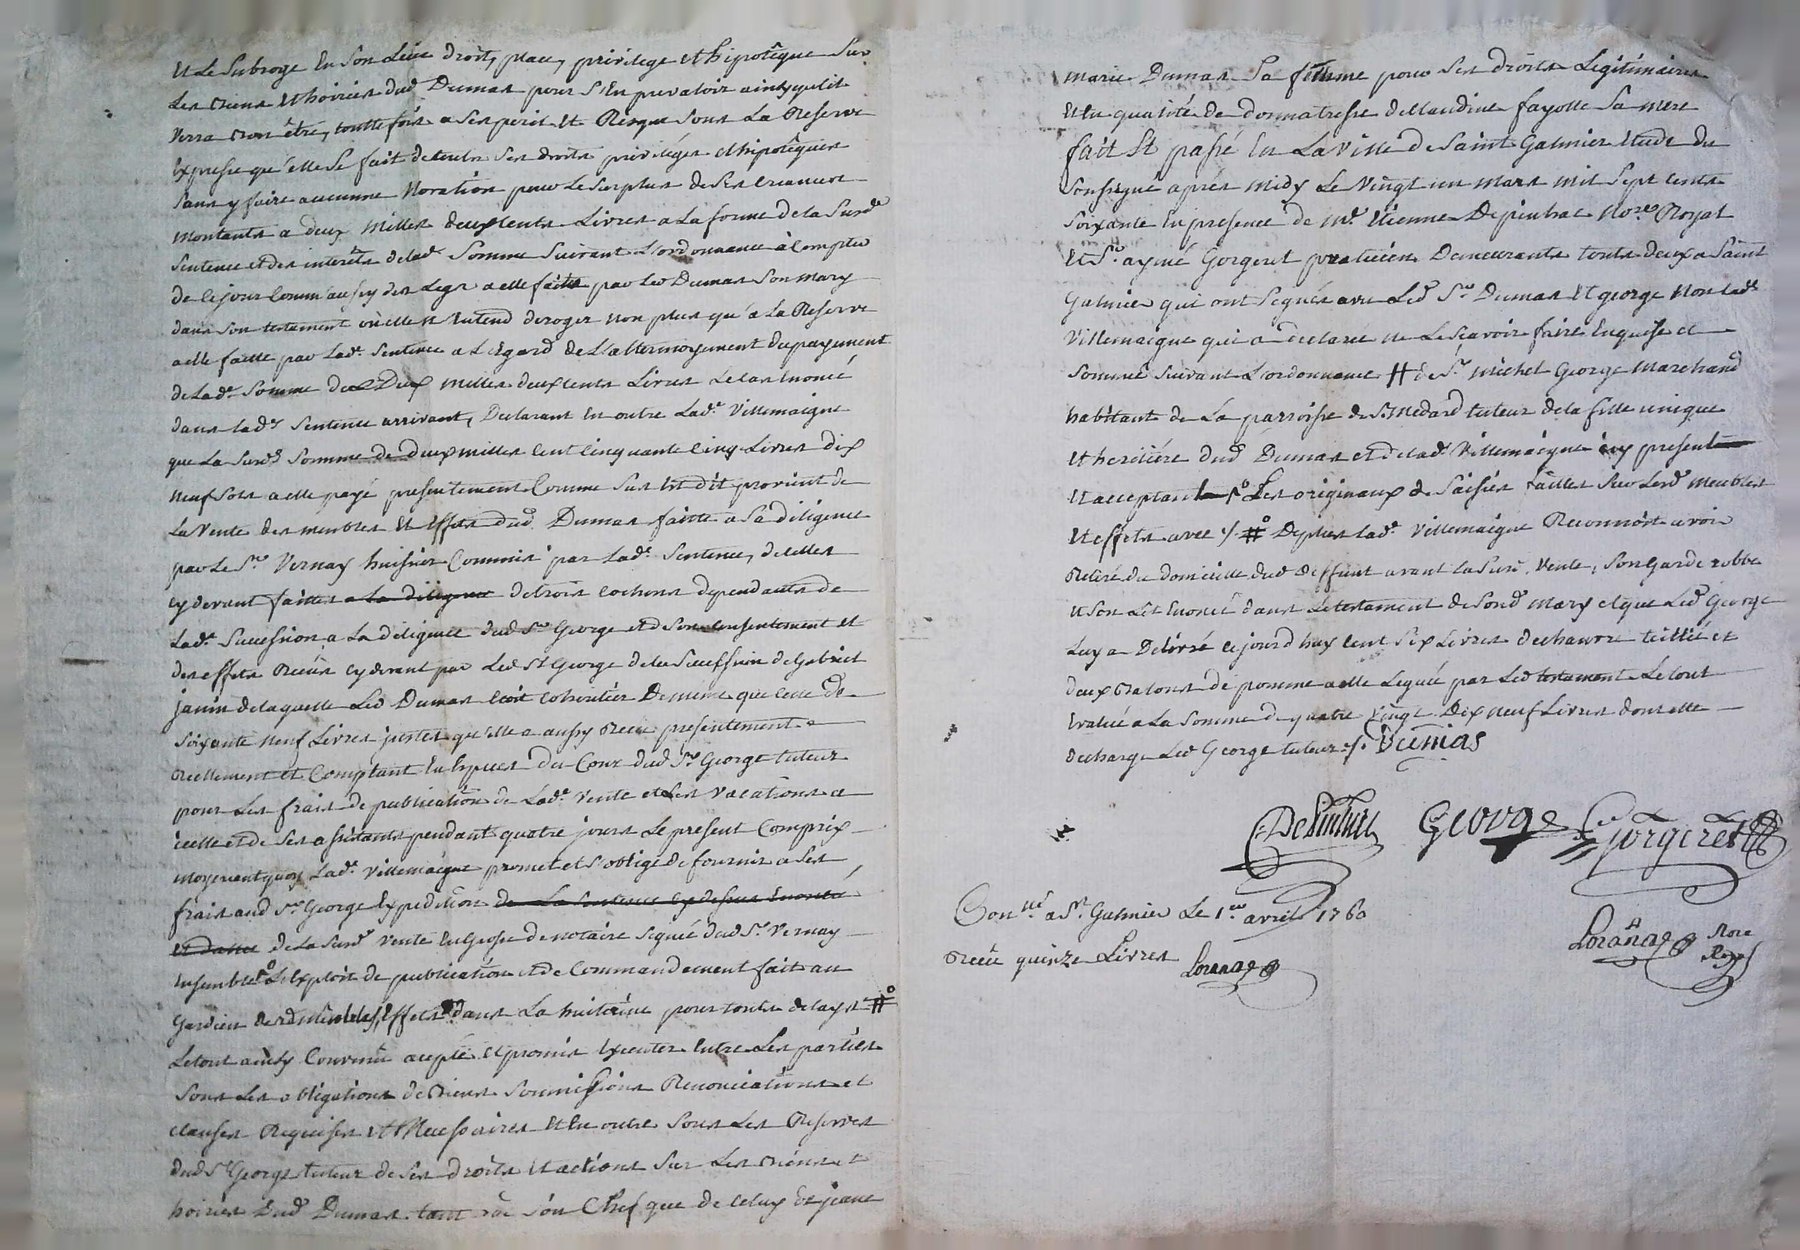 et Le Subroge En Son Lieu droit, place, privilege et hipotêque Sur
Les Biens et hoiries dud Dumas pour S'En prevaloir ainsy qu'elle
verra bon être, toutte fois a Ses peril et Risque Sous La Reserve
Expresse qu'elle Se fait de touts Ses droits privileges et hipotêques
Sans y faire aucunne Novation pour Le Surplus de Ses Creances
montants a deux Milles deux Cents Livres a La forme de la Surde
Sentence et des interêts de lade Somme Suivant L'ordonnance à Compter
de Ce jour Comm'aussy des Legs a elle faits par Led Dumas Son Mary
dans Son testament où elle N'Entend deroger non plus qu'à La Reserve
a elle faitte par Lade Sentence a L'Egard de L'attermoyement du payement
de Lade Somme de Deux Milles deux Cents Livres Le Cas Enoncé
dans lade Sentence arrivant, Declarant En outre Lade Villemaigne
que La Surde Somme de deux milles Cent Cinquante Cinq Livres Dix
Neuf Sols a elle payé presentement Comme Sus Est dit provient de
La Vente des meubles Et Effets dud Dumas faitte a Sa diligence
par Le Sr Vernay huissier Commis par Lade Sentence, de celles
Cy devant faittes a la diligence de trois Cochons dependants de
Lade Succession a La diligence dud Sr George et de Son Consentement et
des effets Reçus Cy devant par Led Sr George de la Succession de Gabriel
janin de laquelle Led Dumas Etoit Coheritier De même que Celle de
Soixante Neuf Livres justes qu'elle a aussy Reçu presentement
Reellement et Comptant En Especes du Cour dud Sr George tuteur
pour Les frais de publication de Lade Vente et Les Vacations a
icelle et de Ses assistants pendant quatre jours Le present Compris
Moyenant quoy Lade Villemaigne promet et S'oblige de fournir a Ses
frais aud Sr George Expedition de La Sentence Cy dessus Enoncée
et dattée de La Surde Vente En Grosse de notaire Signée dud Sr Vernay
Ensemble L'Exploit de publication et de Commandement fait au
Gardien desd Meubles Effets dans La huitaine pour touts delays #
Le tout ainsy Convenu acepté et promis Executer Entre Les parties
Sous Les obligations de Biens Soumissions Renonciations et
clauses Requises et Necessaires Et En outre Sous Les Reserves
dud Sr George tuteur de Ses droits et actions Sur Les Biens et
hoiries Dud Dumas tant de Son Chef que de Celuy de jeanne
marie Dumas Sa femme pour Ses droits Legitimaires
Et En qualité de Donnatresse de Claudine fayolle Sa Mere
fait Et passé En La Ville de Saint Galmier Etude du
Soussigné après Midy Le Vingt un Mars Mil Sept Cents
Soixante En presence de Me Etienne Depinhac Nore Royal
Et Sr aymé Gorgeret praticien Demeurants touts deux a Saint
Galmier qui ont Signés avec Led Sr Dumas Et george Non lade
Villemaigne qui a declaré ne Le Sçavoir faire Enquise et
Sommée Suivant L'ordonnance # de Sr Michel George Marchand
habitant de La parroisse de St Medard tuteur de la fille unique
Et heritière dud Dumas et de lad Villemaigne icy present
Et acceptant Les originaux de Saisies faittes Sur Lesd Meubles
Et effets avec ./. # De plus Lade Villemaigne Reconnoit avoir
Retiré du domicille dud deffunt avant La Sure Vente, Son Garde robbe
Et Son Lit Enoncé dans Le testament de Sond Mary et que Led George
Luy a Delivré ce jourd huy Cent Six Livres de chanvre teillié et
deux Balons de pomme a elle Leguée par Led testament Le tout
Evalué a La Somme de quatre Vingt Dix Neuf Livres dont elle
decharge Led George tuteur ./. Dumas
Depinhac George Gorgeret
Connlé a St Galmier Le 1er avril 1760
Reçu quinze Livres Loranage
Loranage Nore
Royal